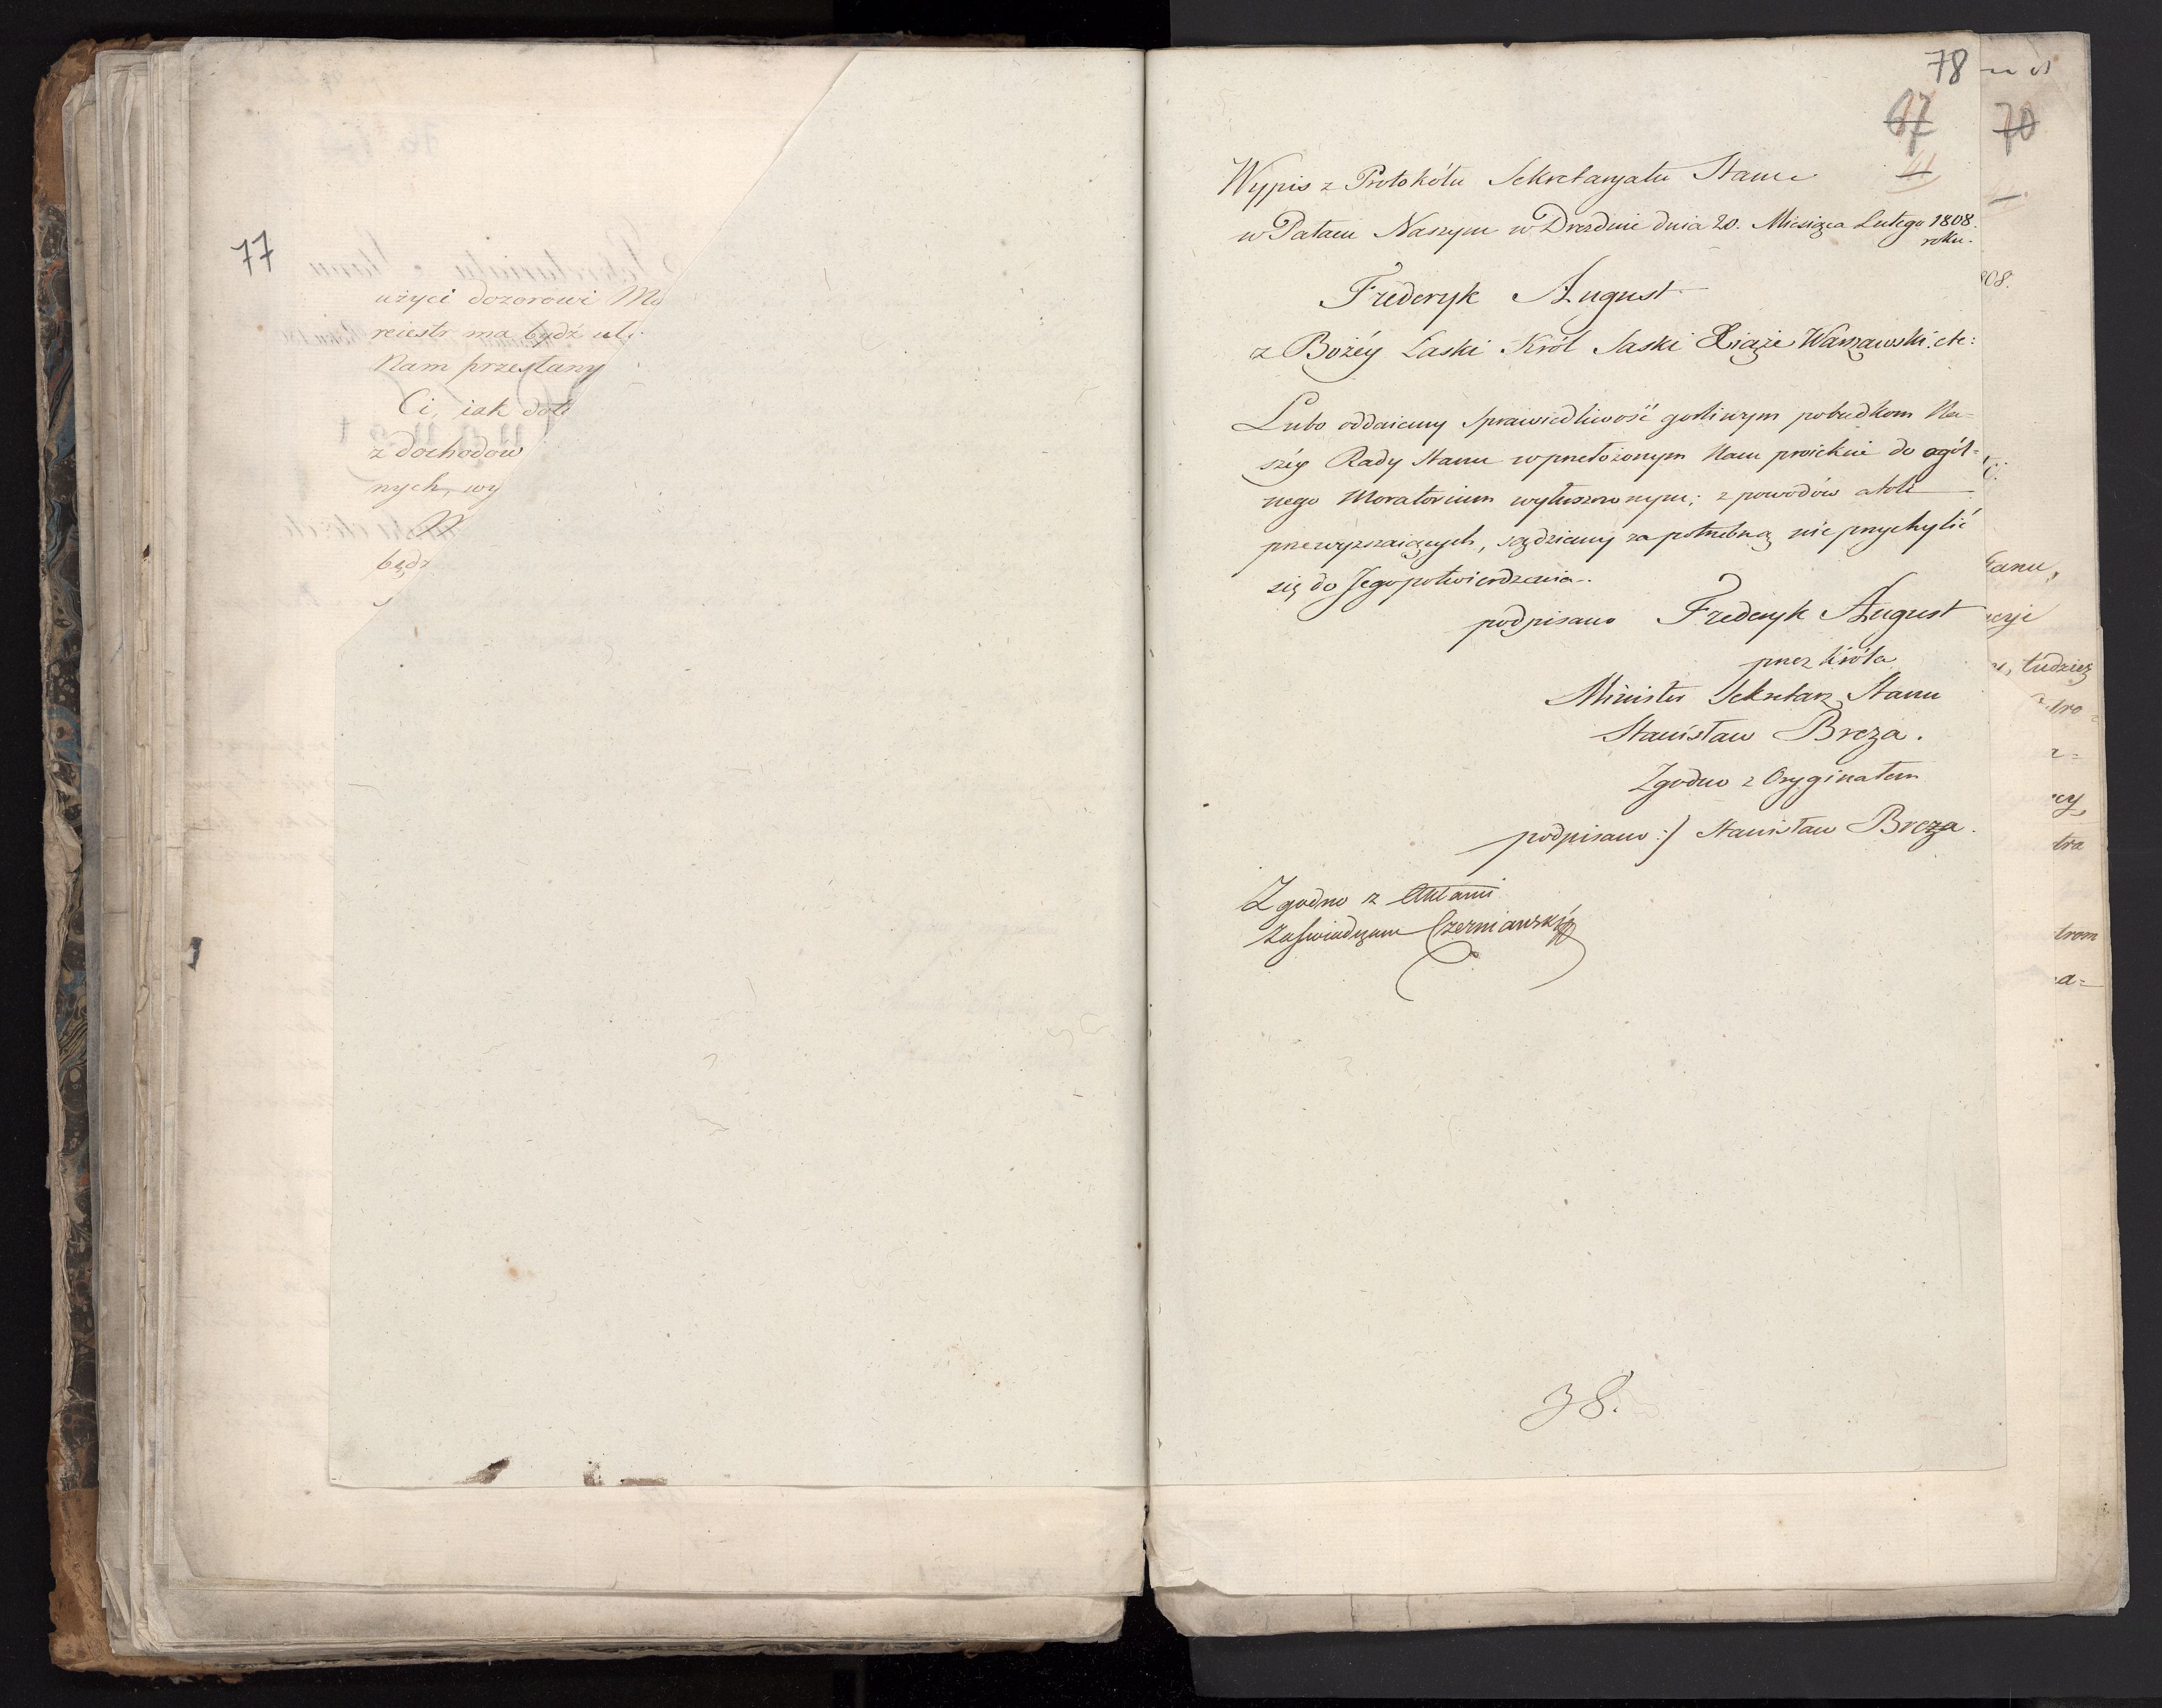 77
użyci dozorowi Mo
reiestr ma bydź
Nam przesłany
Ci, iak
z dochodow
nych, wy
będz
78
67
41
Wypis z Protokółu Sekretaryatu Stanu
w Pałacu Naszym w Dreznie dnia 20. Miesiąca Lutego 1808.
roku.
Frederyk August
z Bożéy Łaski Król Saski Xiąże Warszawski etc:
Lubo oddaiemy sprawiedliwość gorliwym pobudkom Na=
széy Rady Stanu w przełożonym Nam proiekcie do ogól=
nego Moratorium wyłuszczonym; z powodów atoli
przewyzszaiących, sądziemy za potrzebną nie przychylić
się do Jego potwierdzenia.
podpisano Frederyk August
przez Króla
Minister Sekretarz Stanu
Stanisław Breza.
Zgodno z Oryginałem
podpisano:/ Stanisław Breza.
Zgodno z Aktami
zaświadczam Czerniawski
38.
70
808.
tanu,
tudziez
dro=
cy,
tra
trom
a=